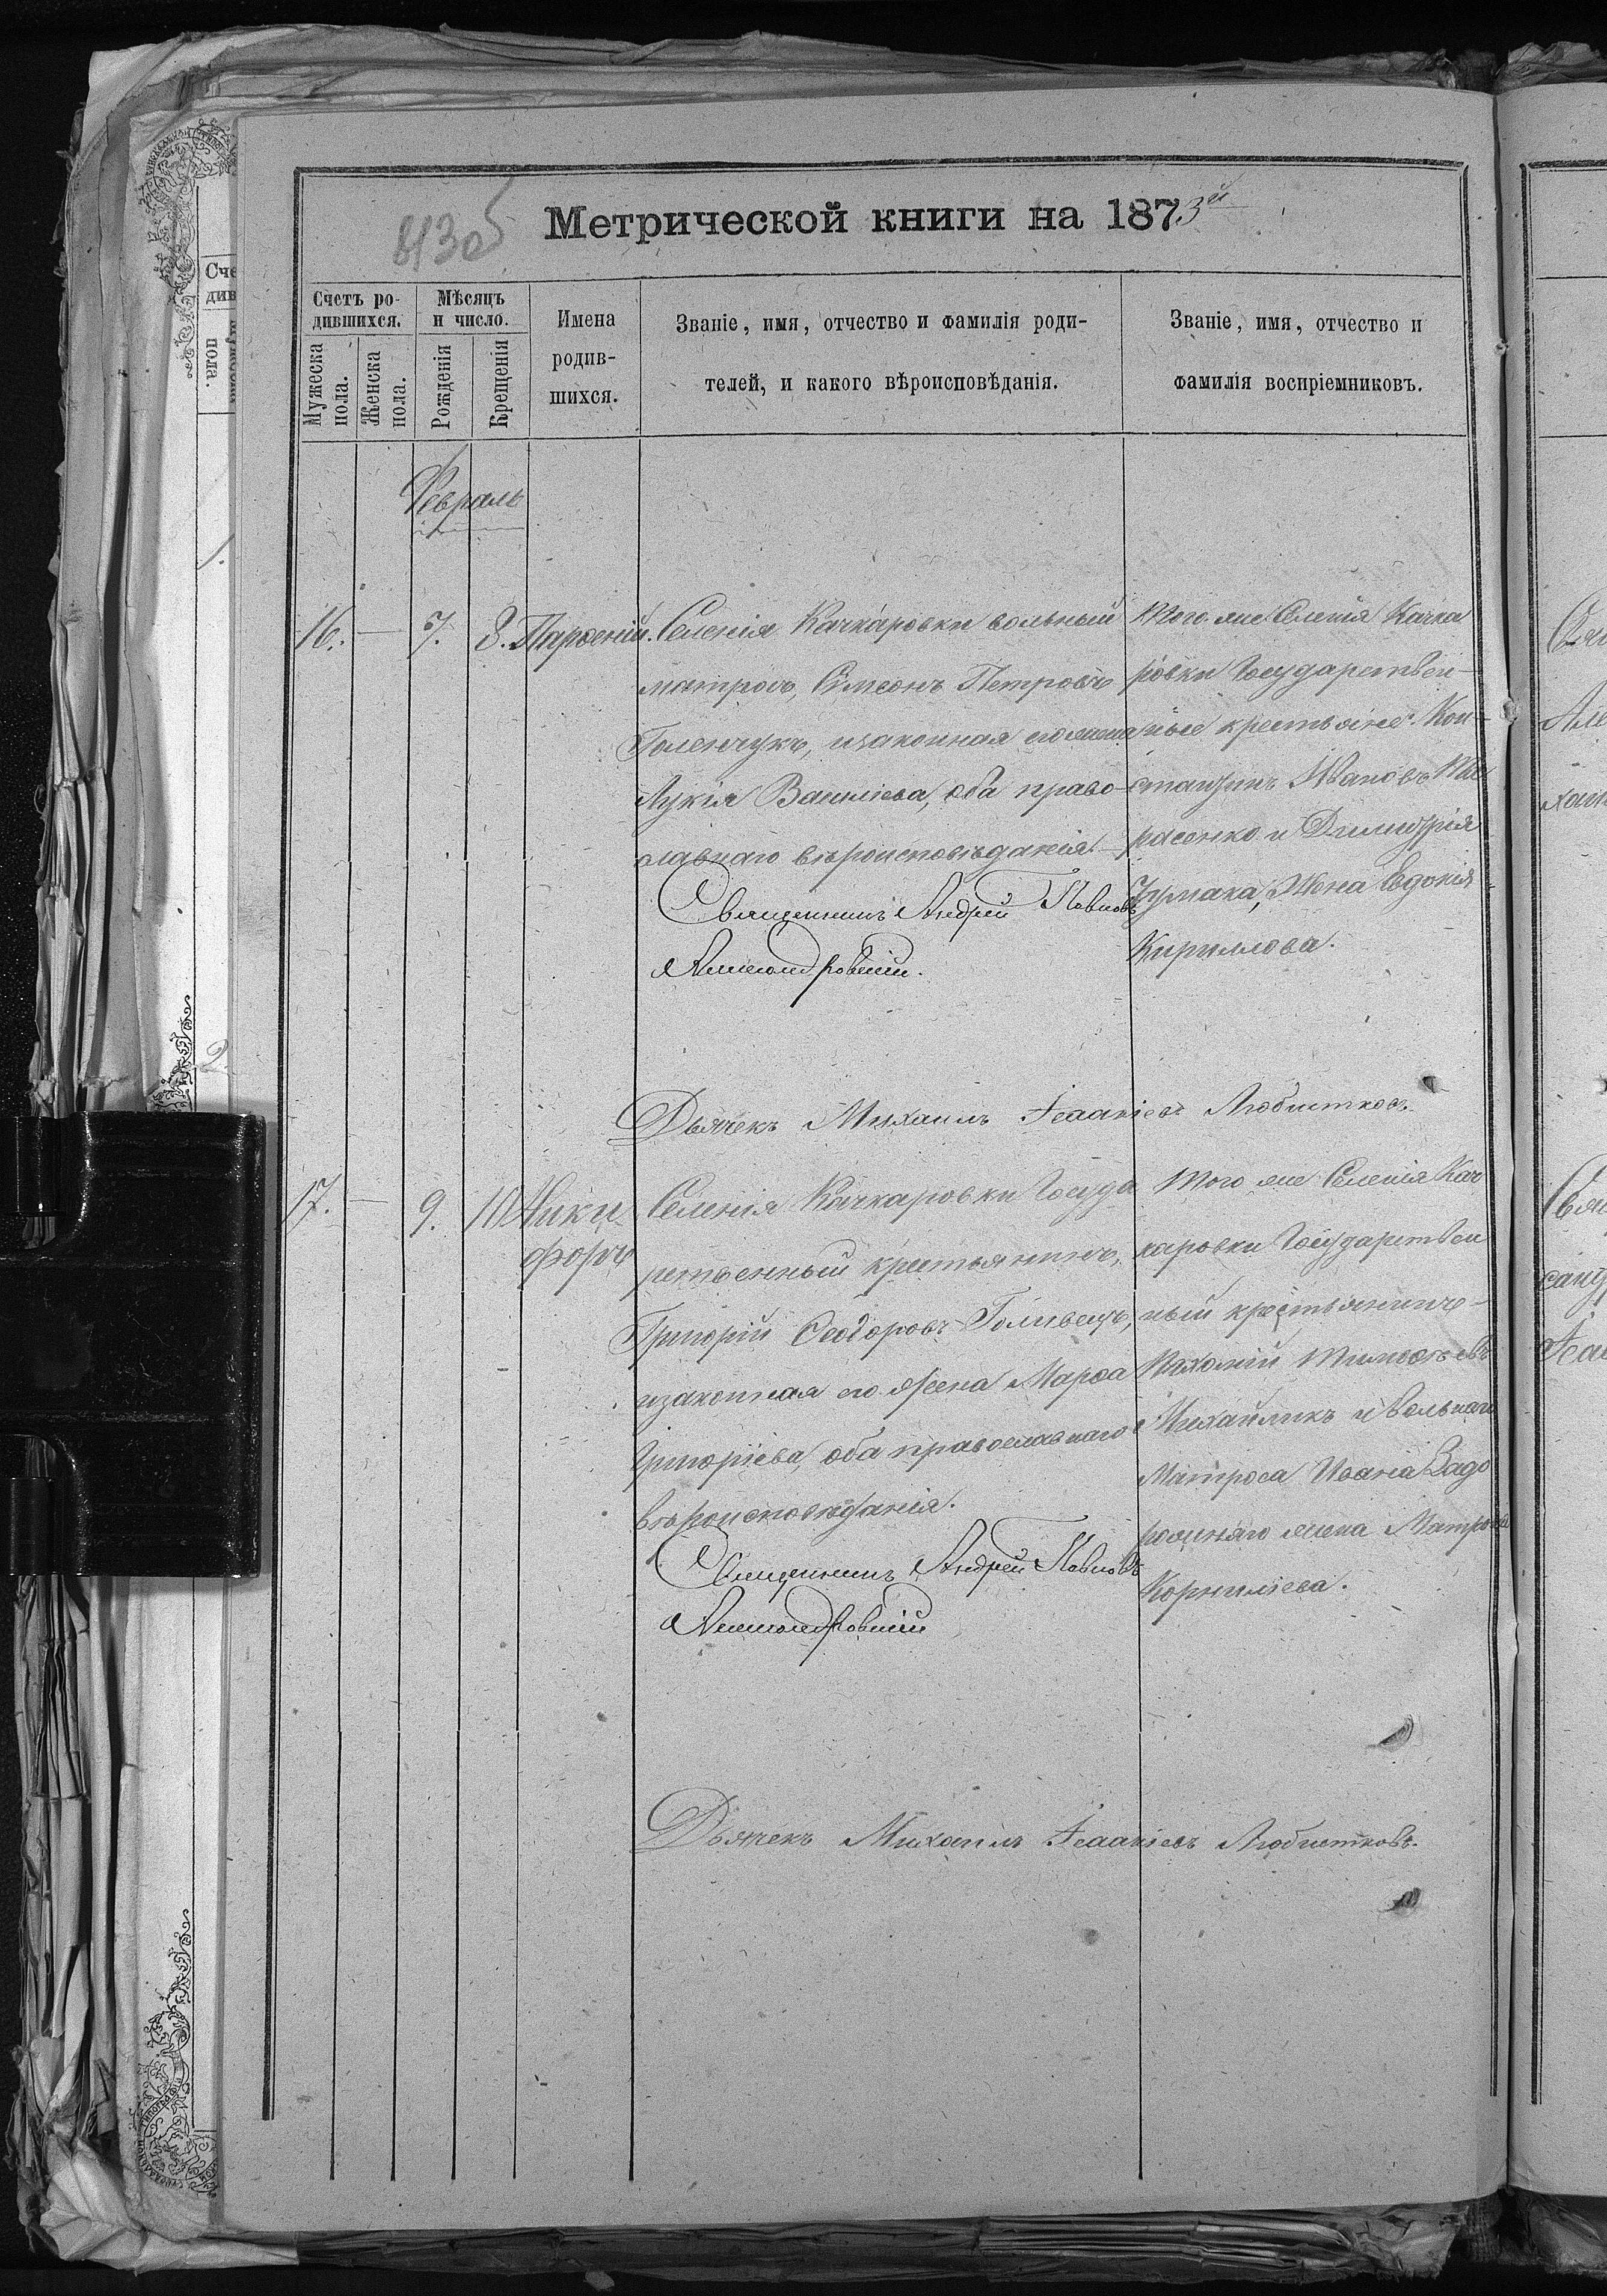 Метрической книги на 1873й
Счетъ ро-
дившихся.
Мѣсяцъ
и число.
Имена
родив-
шихся.
Званіе, имя, отчество и фамилія роди-
телей, и какого вѣроисповѣданія.
Званіе, имя, отчество и
фамилія воспріемниковъ.
Мужеска
пола.
Женска
пола.
Рожденія
Крещенія
Февраль
16. — 7. 8. Парѳеній.
Селенія Качкаровки вольный
матросъ, Сѵмеонъ Петровъ
Голенчукъ, изаконная его жена
Лукія Василіева, оба право-
славнаго вѣроисповѣданія.
Священникъ Андрей Павловъ
Александровскій.
Того же Селенія Качка
ровки Государствен-
ные крестьяне: Кон-
стантинъ Ивановъ Та
расенко и Димитрія
Чумака, Жена Евдокія
Кириллова.
Дьячекъ Михаилъ Ісаакіевъ Любистковъ.
17. — 9. 10 Ники
форъ
Селенія Качкаровки Госуда
рственный крестьянинъ,
Григорій Ѳеодоровъ Голивецъ,
изаконная его Жена Марѳа
Григоріева, оба православнаго
вѣроисповѣданія.
Священникъ Андрей Павловъ
Александровскій
Того же Селенія Кач
каровки Государствен
ный крестьянинъ-
Тимоѳѣевъ
Михайликъ и вольнаго
Матроса Іоанна Задо
рожняго жена Матрона
Корниліева.
Дьячекъ Михаилъ Ісаакіевъ Любистковъ.